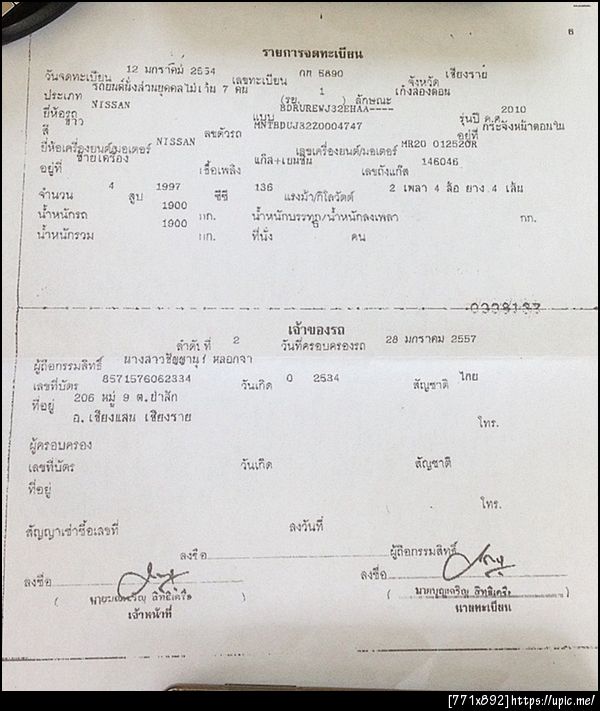 6
รายการจดทะเบียน
วันจดทะเบียน 12 มกราคม 2554 เลขทะเบียน กท 5890 จังหวัด เชียงราย
ประเภท รถยนต์นั่งส่วนบุคคลไม่เกิน 7 คน (รย. 1 ) ลักษณะ เก๋งสองตอน
ยี่ห้อรถ NISSAN แบบ BDRUREWJ32EHAA---- รุ่นปี ค.ศ. 2010
สี ขาว เลขตัวรถ MNTBDUJ32Z0004747 อยู่ที่ กระจังหน้าตอนใน
ยี่ห้อเครื่องยนต์/มอเตอร์ NISSAN เลขเครื่องยนต์/มอเตอร์ MR20 012520R
อยู่ที่ ซ้ายเครื่อง เชื้อเพลิง แก๊ส+เบนซิน เลขถังแก๊ส 146046
จำนวน 4 สูบ 1997 ซีซี 136 แรงม้า/กิโลวัตต์ 2 เพลา 4 ล้อ ยาง 4 เส้น
น้ำหนักรถ 1900 กก. น้ำหนักบรรทุก/น้ำหนักลงเพลา กก.
น้ำหนักรวม 1900 กก. ที่นั่ง 6 คน
เจ้าของรถ
ลำดับที่ 2 วันที่ครอบครองรถ 28 มกราคม 2557
ผู้ถือกรรมสิทธิ์ นางสาว
เลขที่บัตร 8571576062334 วันเกิด 0 2534 สัญชาติ ไทย
ที่อยู่ 206 หมู่ 9 ต.ป่าสัก
อ.เชียงแสน เชียงราย โทร.
ผู้ครอบครอง
เลขที่บัตร วันเกิด สัญชาติ
ที่อยู่
โทร.
สัญญาเช่าซื้อเลขที่ ลงวันที่
ลงชื่อ ผู้ถือกรรมสิทธิ์
ลงชื่อ ลงชื่อ
( นายบุญเจริญ สิทธิเครือ ) ( นายบุญเจริญ สิทธิเครือ )
เจ้าหน้าที่ นายทะเบียน
[771x892]https://upic.me/